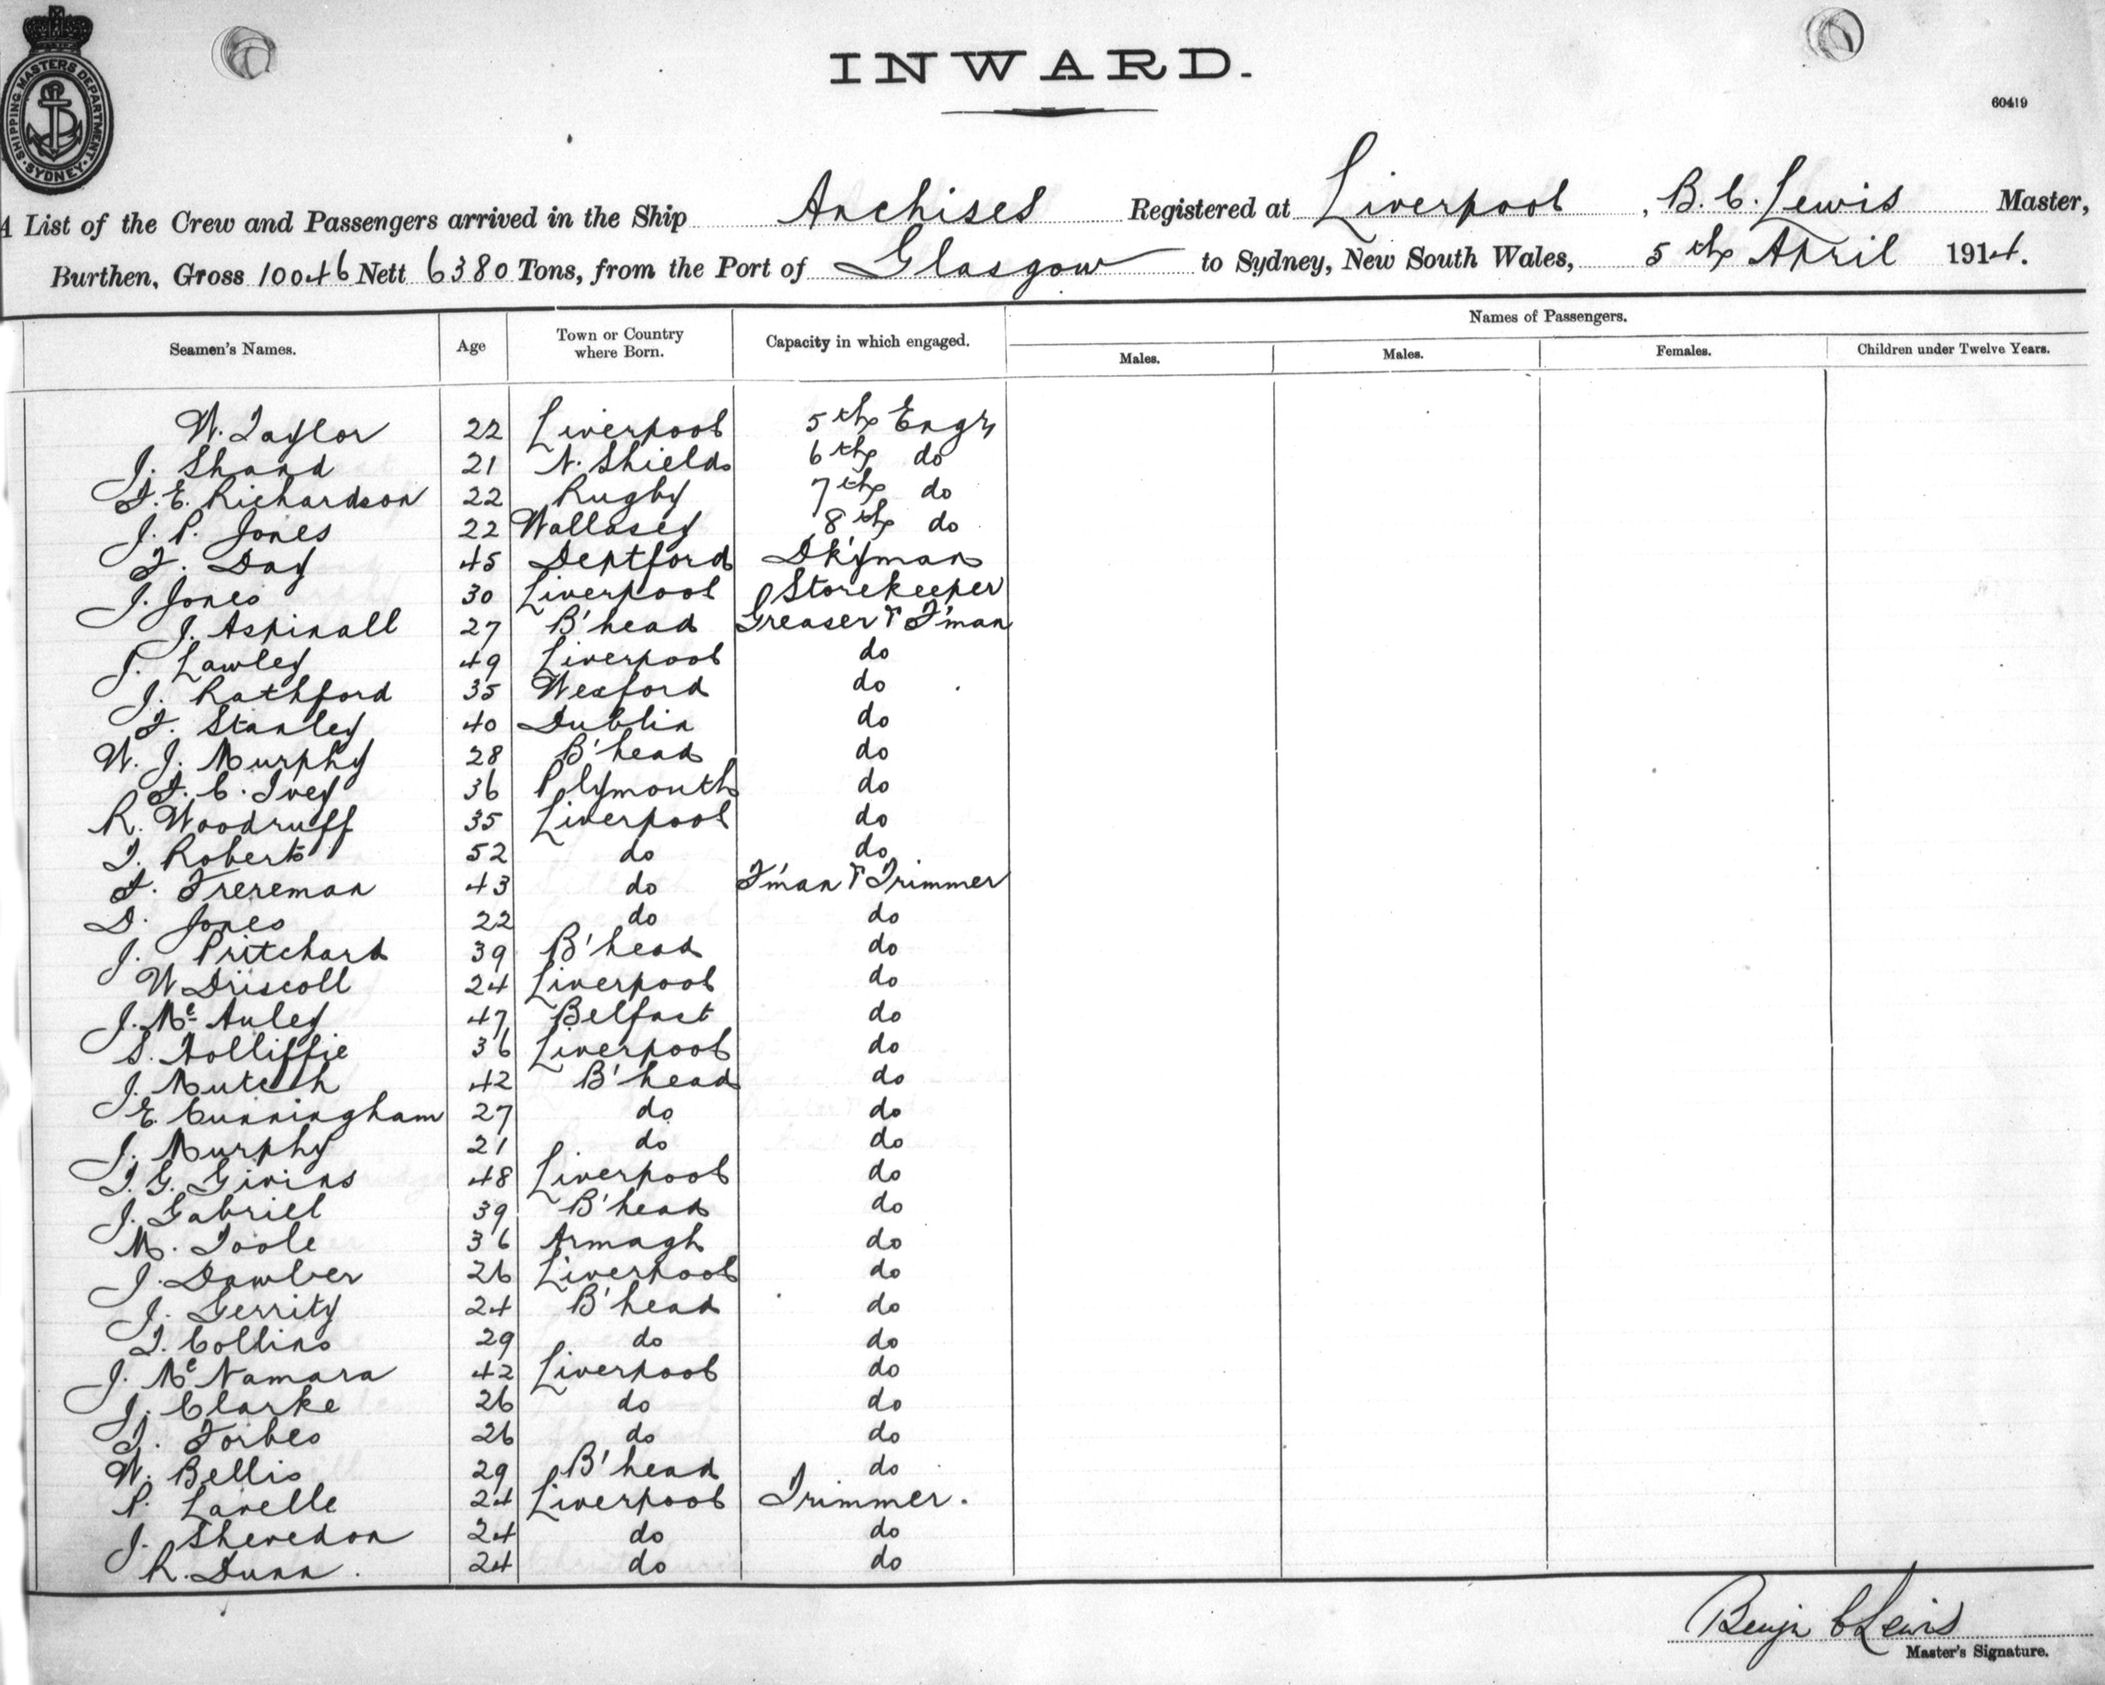 SHIPPING MASTERS DEPARTMENT
SYDNEY
INWARD.
60419
A List of the Crew and Passengers arrived in the Ship Anchises Registered at Liverpool, B. C. Lewis Master,
Burthen, Gross 10046 Nett 6380 Tons, from the Port of Glasgow to Sydney, New South Wales, 5th April 1914.
Names of Passengers.
Seamen's Names. Age Town or Country where Born. Capacity in which engaged. Males. Males. Females. Children under Twelve Years.
W. Taylor 22 Liverpool 5th Engr
J. Shand 21 N. Shields 6th do
T. E. Richardson 22 Rugby 7th do
J. P. Jones 22 Wallasey 8th do
T. Day 45 Deptford Dk'yman
J. Jones 30 Liverpool Storekeeper
J. Aspinall 27 B'head Greaser & F'man
J. Lawley 49 Liverpool do
J. Rathford 35 Wexford do
T. Stanley 40 Dublin do
W. J. Murphy 28 B'head do
F. C. Ivey 36 Plymouth do
R. Woodruff 35 Liverpool do
T. Roberts 52 do do
F. Frereman 43 do F'man & Trimmer
D. Jones 22 do do
J. Pritchard 39 B'head do
W Driscoll 24 Liverpool do
J. Mc Auley 47 Belfast do
S. Holliffie 36 Liverpool do
J. Mutch 42 B'head do
E. Cunningham 27 do do
J. Murphy 21 do do
T. G. Givins 48 Liverpool do
J. Gabriel 39 B'head do
M. Toole 36 Armagh do
J. Dawber 26 Liverpool do
J. Gerrity 24 B'head do
T. Collins 29 do do
J. Mc Namara 42 Liverpool do
J. Clarke 26 do do
T. Forbes 26 do do
W. Bellis 29 B'head do
P. Lavelle 24 Liverpool Trimmer.
J. Sheredon 24 do do
R. Dunn. 24 do do
Benjn C Lewis
Master's Signature.